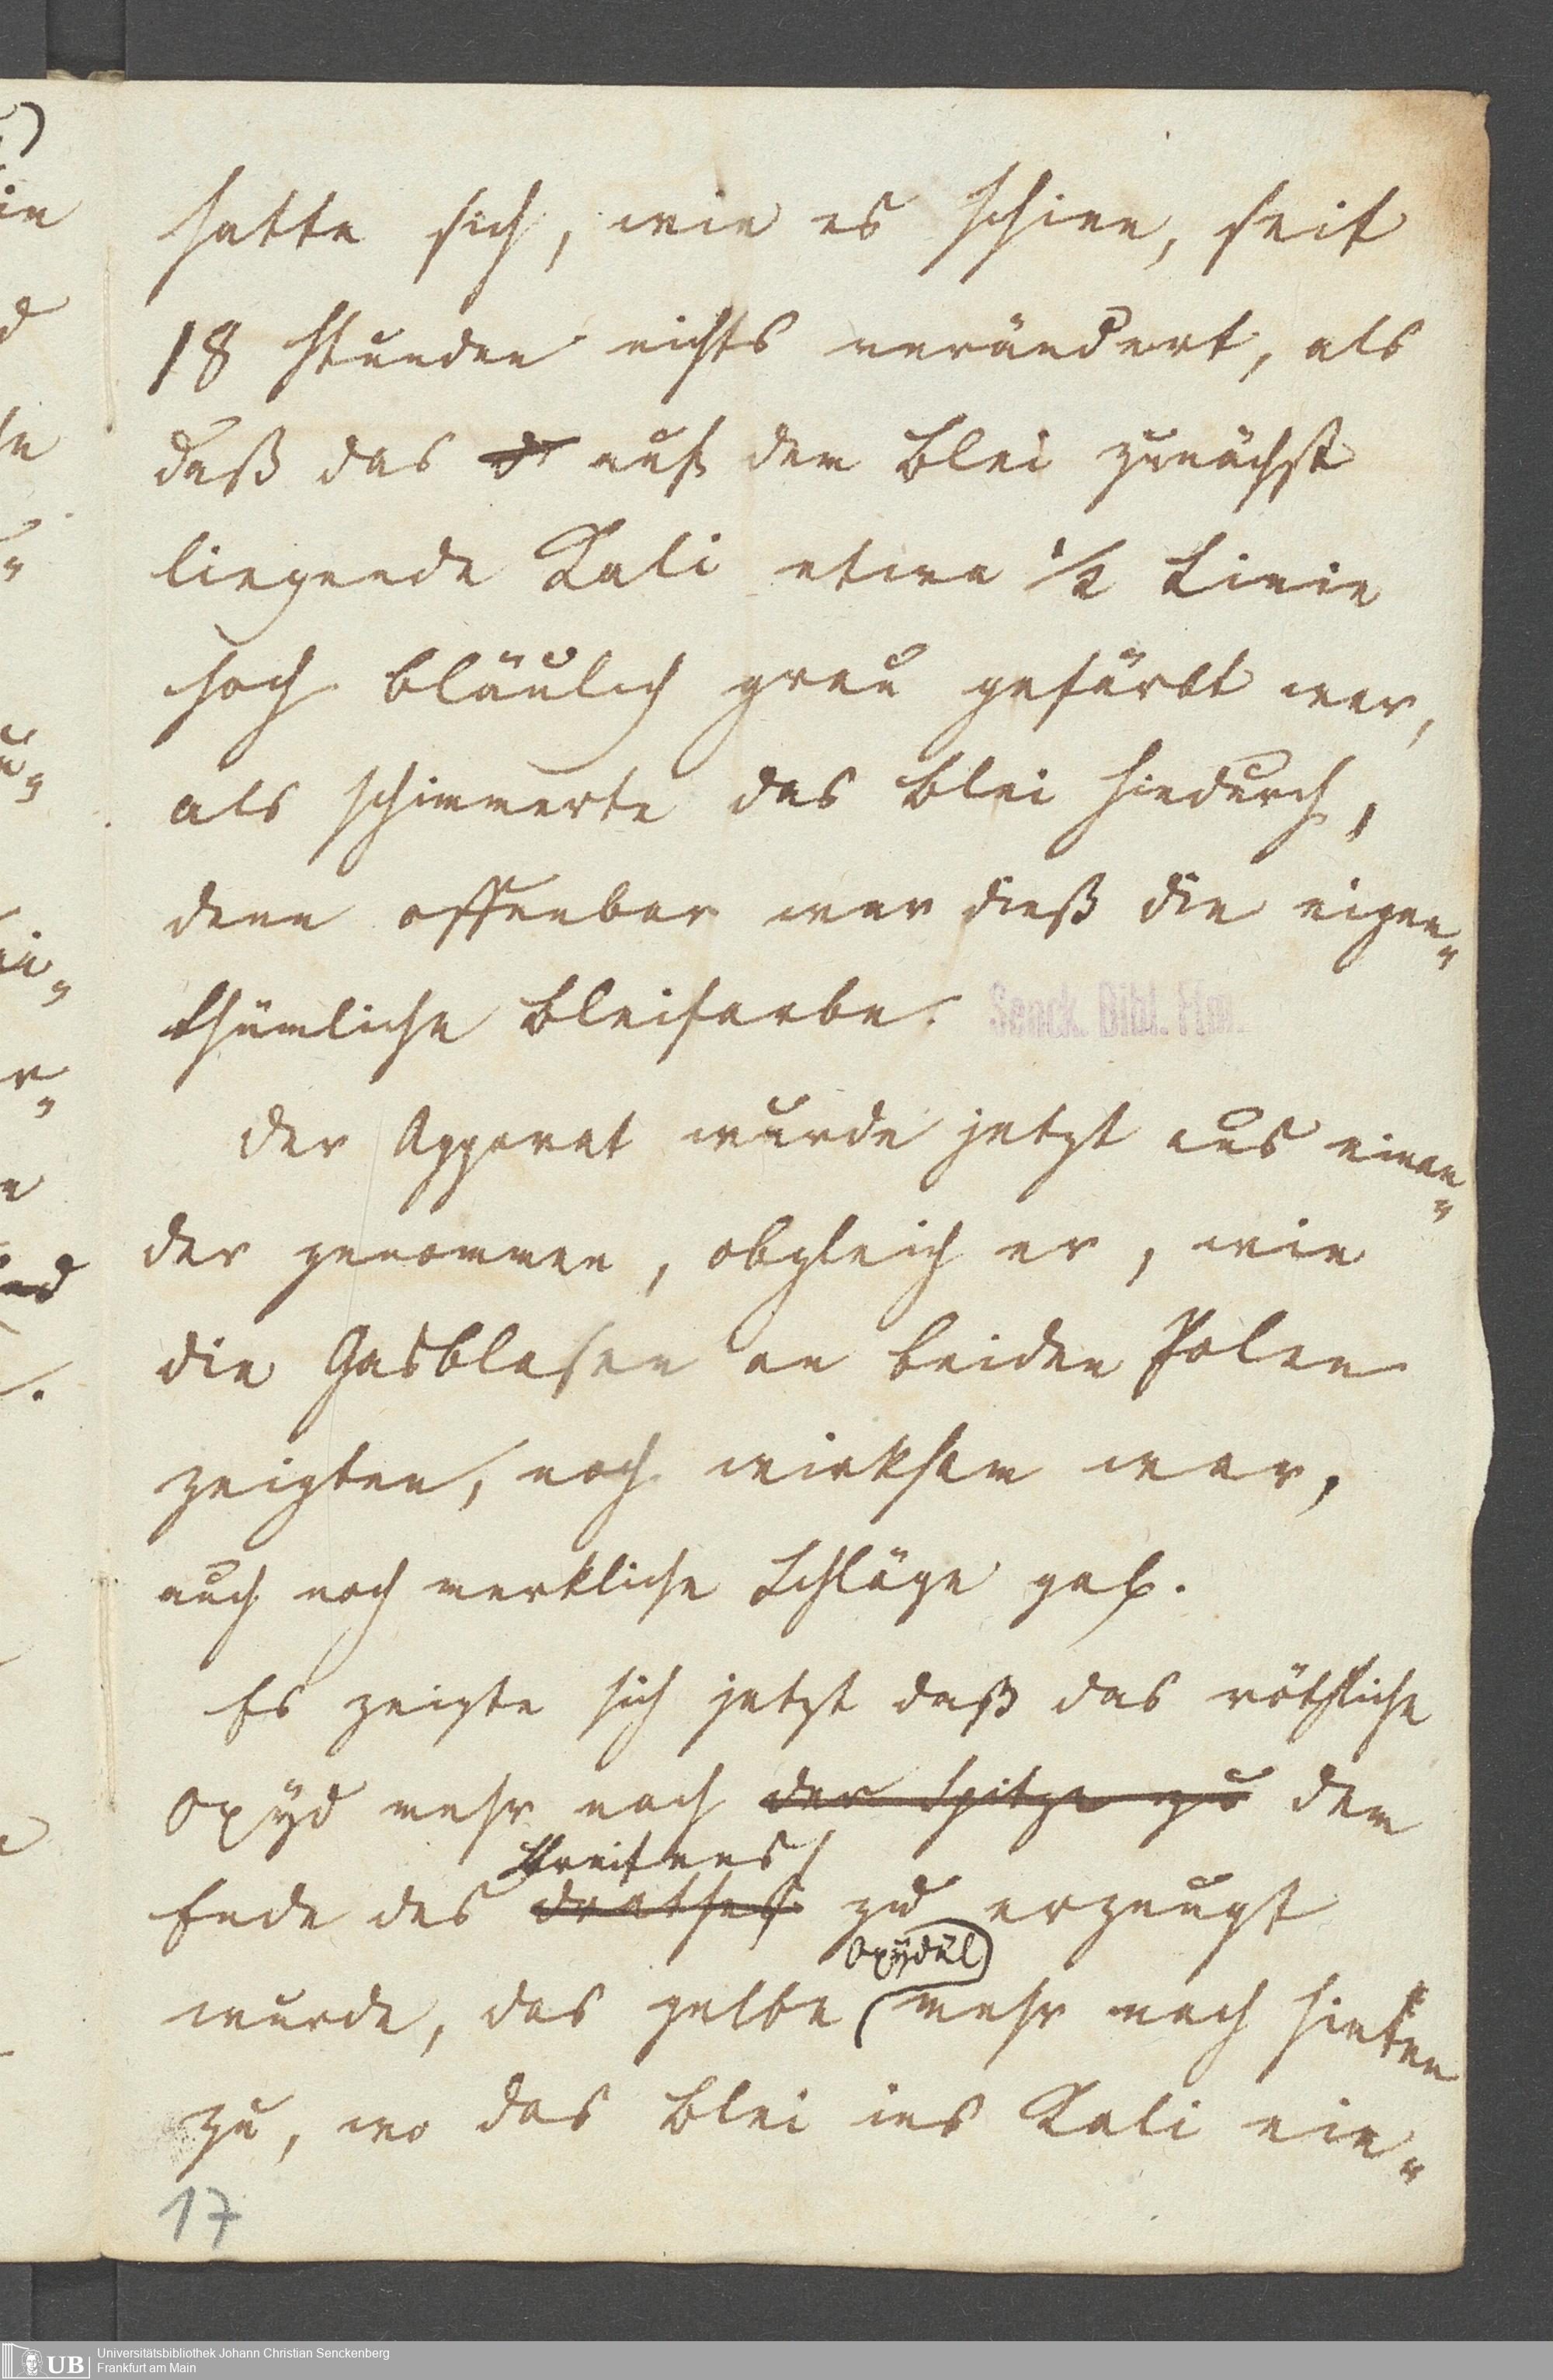 hatte sich, wie es schien, seit
18 Stunden nichts verändert, als
daß das auf dem Blei zunächst
liegende Kali etwa 1/2 Linie
hoch bläulich grau gefärbt war,
als schimmerte das Blei hindurch,
denn offenbar war dieß die eigen„
thümliche Bleifarbe.
Senck. Bibl. Ffm.
Der Apparat wurde jetzt aus einan„
der genommen, obgleich er, wie
die Gasblasen an beiden Polen
zeigten, noch wirksam war,
auch noch merkliche Schläge gab.
Es zeigte sich jetzt daß das röthliche
Oxÿd mehr nach der Spitze zu dem
Streifens
Ende des Drathes zu erzeugt
Oxÿdül
wurde, das gelbe mehr nach hinten
zu, wo das Blei ins Kali ein„
17
UB
Universitätsbibliothek Johann Christian Senckenberg
Frankfurt am Main